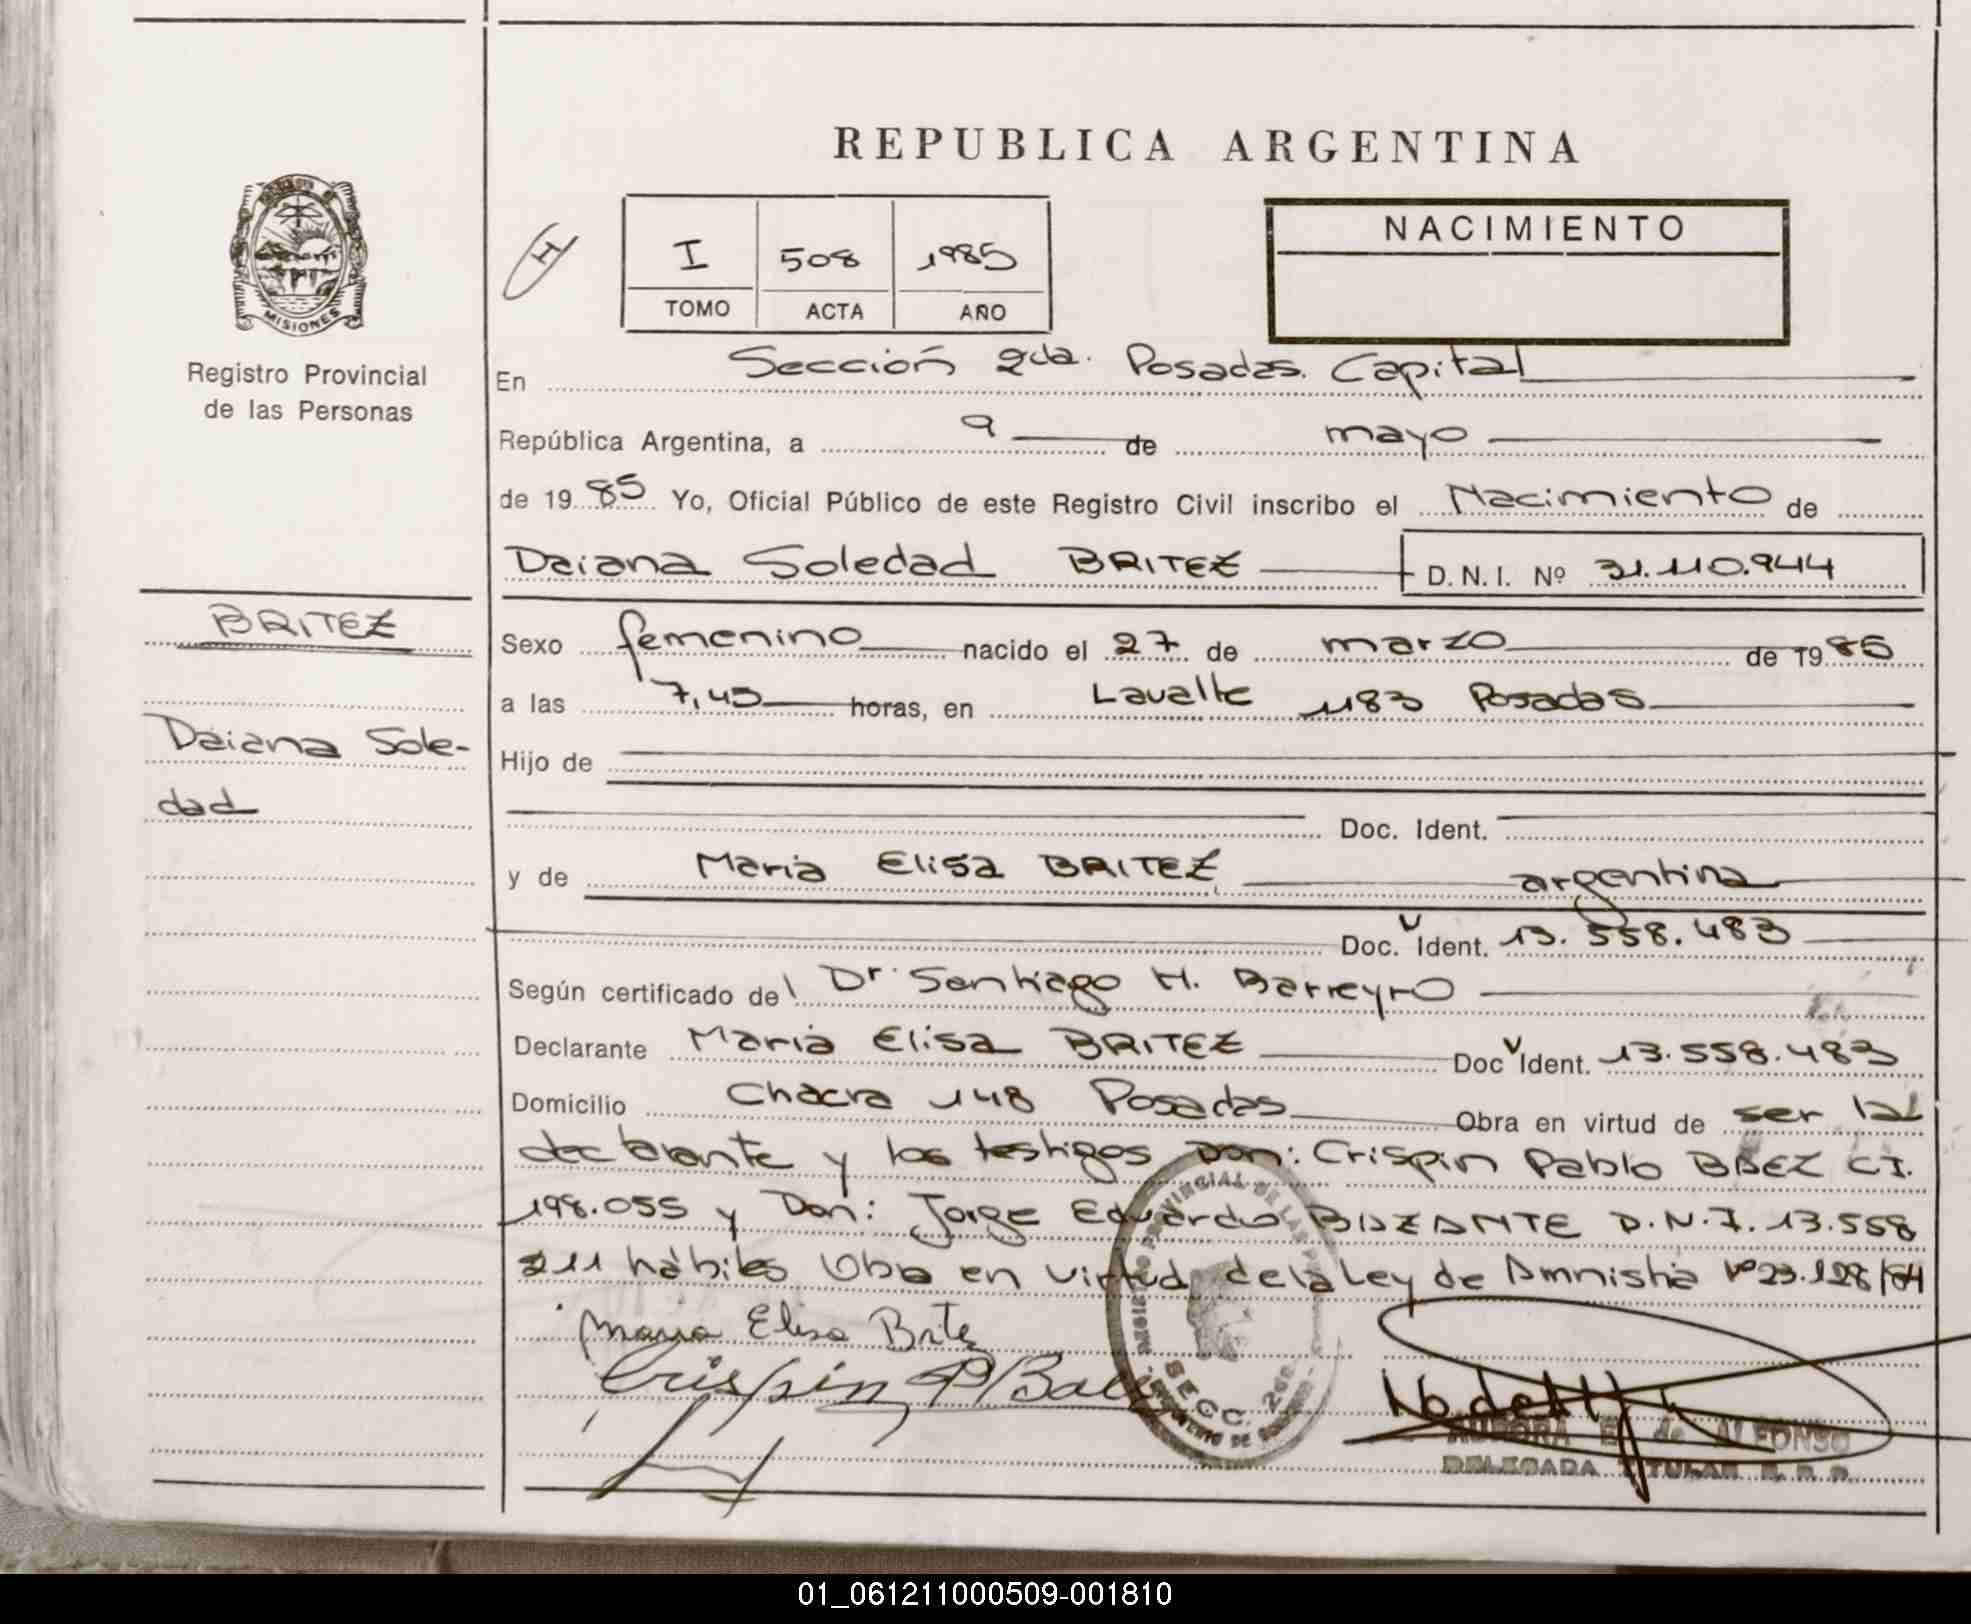 REPUBLICA ARGENTINA
MISIONES
Registro Provincial
de las Personas
H
I 508 1985
TOMO ACTA AÑO
NACIMIENTO
En Sección 2da. Posadas. Capital
República Argentina, a 9 de mayo
de 1985 Yo, Oficial Público de este Registro Civil inscribo el Nacimiento de
Daiana Soledad BRITEZ D.N.I. Nº 31.110.944
BRITEZ
Daiana Sole-
dad
Sexo femenino nacido el 27 de marzo de 1985
a las 7,45 horas, en Lavalle 1183 Posadas
Hijo de
Doc. Ident.
y de Maria Elisa BRITEZ argentina
Doc. Ident. 13.558.483
Según certificado del Dr Santiago H. Barreyro
Declarante Maria Elisa BRITEZ Doc Ident. 13.558.483
Domicilio Chacra 148 Posadas Obra en virtud de ser la
declarante y los testigos Don: Crispin Pablo BAEZ C.I.
198.055 y Don: Jorge Eduardo D.N.I. 13.558
211 hábiles Obra en virtud de la Ley de Amnistia Nº 23.128/84
Maria Elisa Britez
Crispin P Baez
REGISTRO PROVINCIAL DE LAS
SECC. 2da
AURORA E. de ALFONSO
DELEGADA TITULAR R. P. P.
01_061211000509-001810